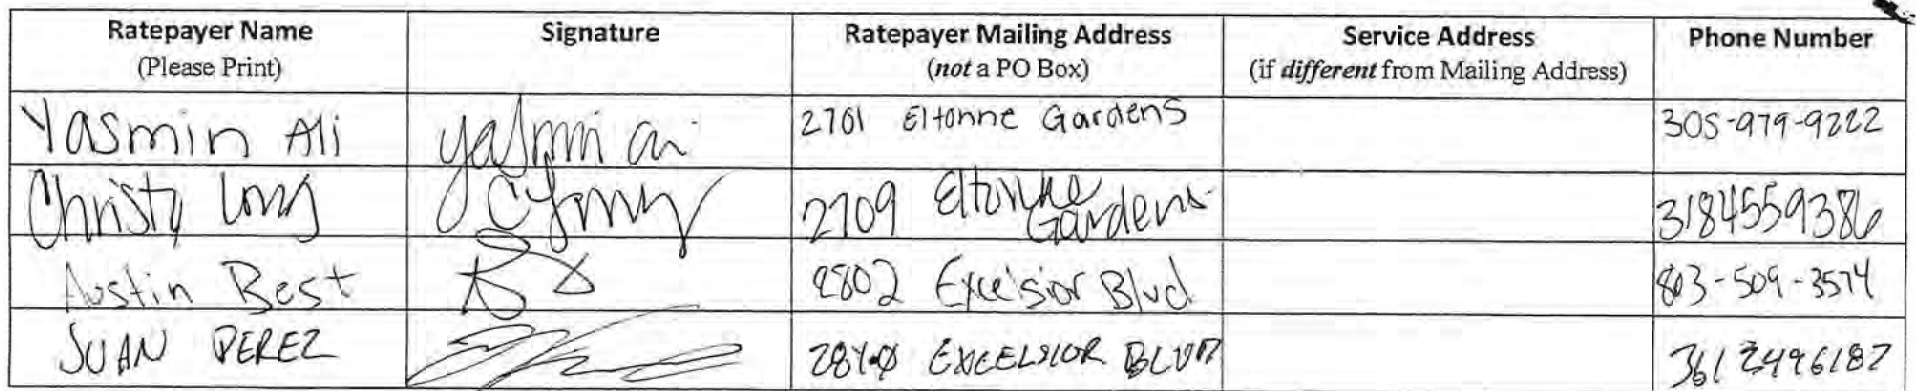 Ratepayer Name
(Please Print)
Signature
Ratepayer Mailing Address
(not a PO Box)
Service Address
(if different from Mailing Address)
Phone Number
Yasmin Ali
yasmin ali
2701 Eltonne Gardens
305-979-9222
Christy Long
2709 Eltonne
Gardens
3184559386
Austin Best
2802 Excelsior Blvd
803-509-3574
JUAN PEREZ
EXCELSIOR BLVD
3612496187